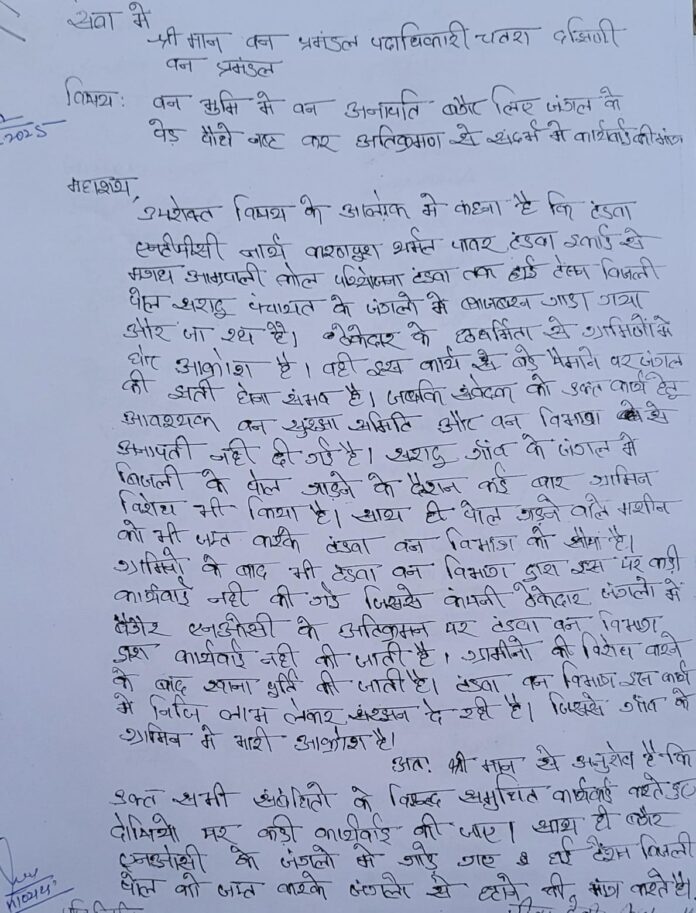 सेवा मे
श्री मान वन प्रमंडल पदाधिकारी चतरा दक्षिणी
वन प्रमंडल
विषय: वन भुमि मे वन अनापति बगैर लिए जंगल के
2025
पेड़ पौधे नष्ट कर अतिक्रमण से संदर्भ मे कार्यवाई की मांग
महाशय,
उपरोक्त विषय के आलोक मे कहना है कि टंडवा
एनटीपीसी नार्थ करणपुरा थर्मल पावर टंडवा इकाई से
मगध आम्रपाली कोल परियोजना टंडवा तक हाई टेंशन बिजली
पोल सराढु पंचायत के जंगलो मे गाड़ा गया
और जा रहा है। ठेकेदार के हठधर्मिता से ग्रामिणो मे
घोर आक्रोश है। वही इस कार्य से बड़े पैमाने पर जंगल
की क्षती होना संभव है। जबकि संवेदक को उक्त कार्य हेतु
आवश्यक वन सुरक्षा समिति और वन विभाग से
अनापती नही दी गई है। सराढु गाँव के जंगल मे
बिजली के पोल गाड़ने के दौरान कई बार ग्रामिन
विरोध भी किया है। साथ ही पोल गाड़ने वाले मशीन
को भी जप्त करके टंडवा वन विभाग को सौंपा है।
ग्रामिणो के बाद भी टंडवा वन विभाग द्वारा इस पर कड़ी
कार्यवाई नही की गई जिससे कंपनी ठेकेदार जंगलो में
बैगैर एनओसी के अतिक्रमन पर टंडवा वन विभाग
द्वारा कार्यवाई नही की जाती है। ग्रामीनो की विरोध करने
के बाद खाना पुर्ति की जाती है। टंडवा वन विभाग इस कार्य
मे निजि लाभ लेकर संरक्षन दे रही है। जिससे गाँव के
ग्रामिन मे भारी आक्रोश है।
अतः श्री मान से अनुरोध है कि
उक्त सभी संबंधितो के विरूद्ध समुचित कार्यवाई करते हुए
दोषियो पर कड़ी कार्यवाई की जाए। साथ ही बगैर
एनओसी के जंगलो मे गाड़े गए हाई टेंशन बिजली
पोल को जप्त करके जंगलो से हटाने की मांग करते है।